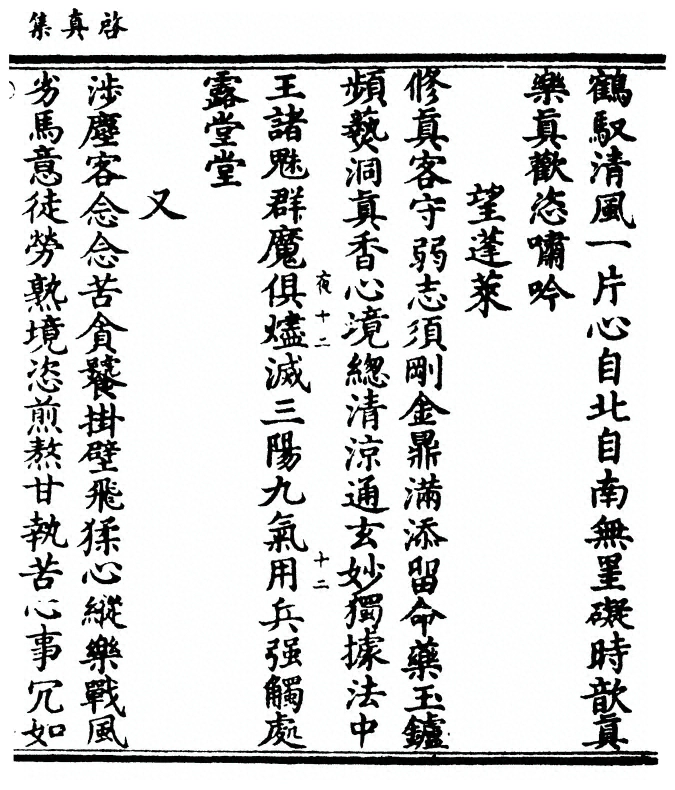 啓真集
鶴馭清風一片心自北自南無罣礙時歆真
樂真歡恣嘯吟
望蓬萊
修真客守弱志須剛金鼎滿添留命藥玉鑪
頻爇洞真香心境總清涼通玄妙獨據法中
夜十二
十二
王諸魁群魔俱燼滅三陽九氣用兵强觸處
露堂堂
又
涉塵客念念苦貪饕掛壁飛猱心縱樂戰風
劣馬意徒勞熟境恣煎熬甘執苦心事冗如